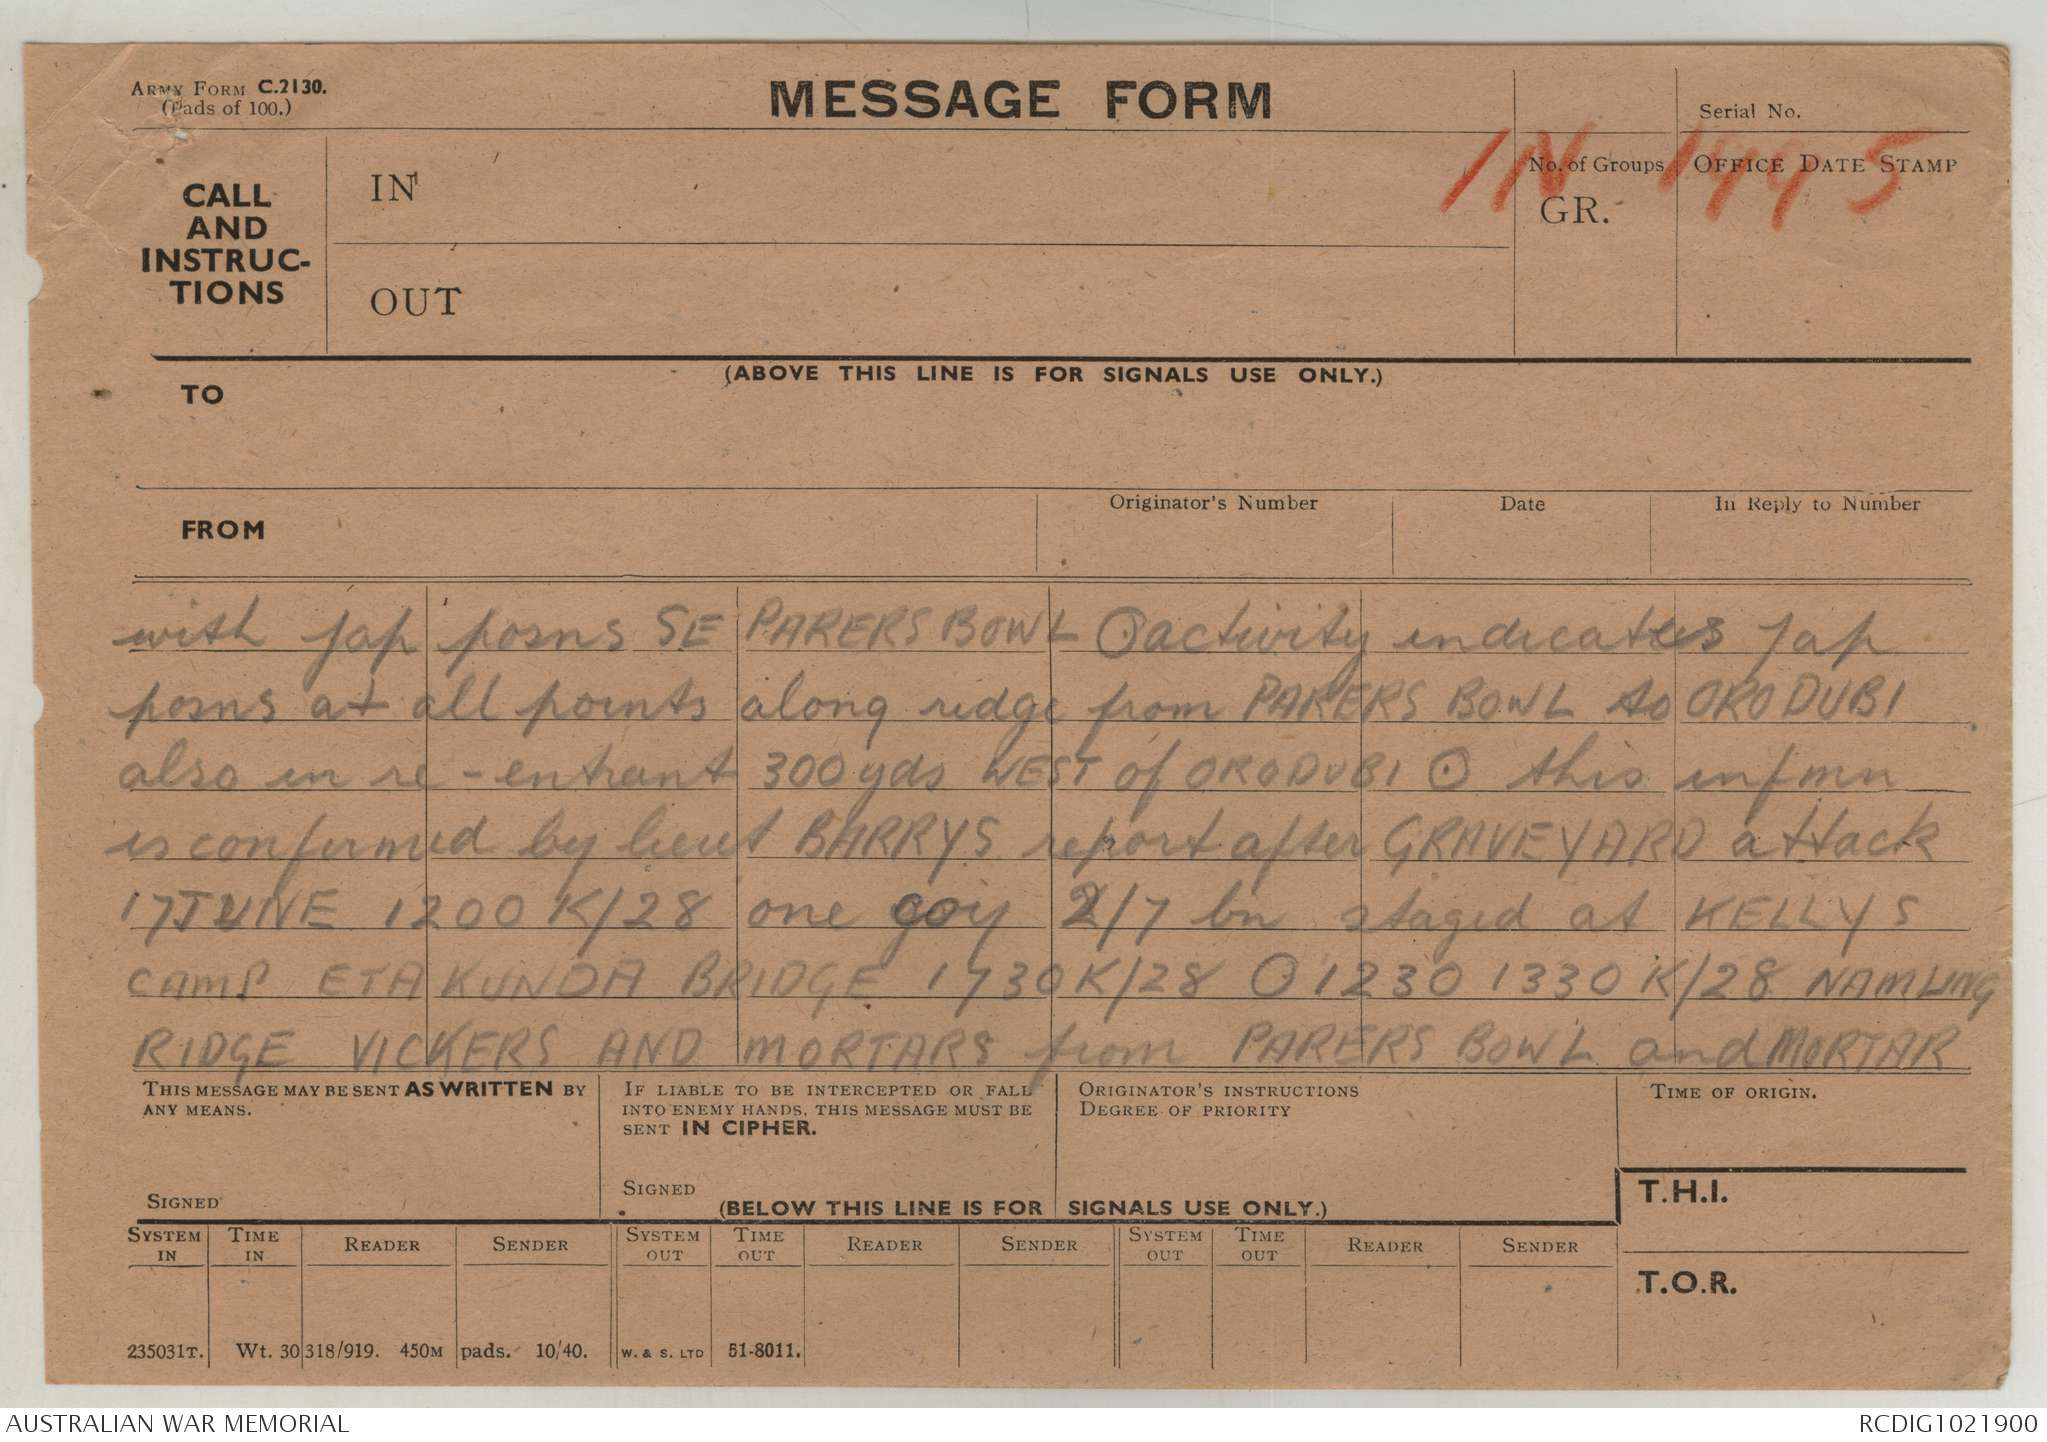 ARMY FORM C.2130.
(Pads of 100.)
MESSAGE FORM
Serial No.
CALL
AND
INSTRUC-
TIONS
IN
OUT
No. of Groups
GR.
OFFICE DATE STAMP
IN 1995
(ABOVE THIS LINE IS FOR SIGNALS USE ONLY.)
TO
FROM
Originator's Number
Date
In Reply to Number
with Jap posns SE PARERS BOWL ⊙ activity indicates Jap
posns at all points along ridge from PARERS BOWL to ORODUBI
also in re-entrant 300 yds WEST of ORODUBI ⊙ this infmn
is confirmed by lieut BARRYS report after GRAVEYARD attack
17 JUNE 1200 K/28 one coy 2/7 bn staged at KELLYS
CAMP ETA KUNDA BRIDGE 1730 K/28 ⊙ 1230 1330 K/28 NAMLING
RIDGE VICKERS AND MORTARS from PARERS BOWL and MORTAR
THIS MESSAGE MAY BE SENT AS WRITTEN BY
ANY MEANS.
SIGNED
IF LIABLE TO BE INTERCEPTED OR FALL
INTO ENEMY HANDS, THIS MESSAGE MUST BE
SENT IN CIPHER.
SIGNED
ORIGINATOR'S INSTRUCTIONS
DEGREE OF PRIORITY
TIME OF ORIGIN.
(BELOW THIS LINE IS FOR SIGNALS USE ONLY.)
T.H.I.
T.O.R.
SYSTEM IN
TIME IN
READER
SENDER
SYSTEM OUT
TIME OUT
READER
SENDER
SYSTEM OUT
TIME OUT
READER
SENDER
235031T. Wt. 30318/919. 450M pads. 10/40. W. & S. LTD 51-8011.
AUSTRALIAN WAR MEMORIAL
RCDIG1021900